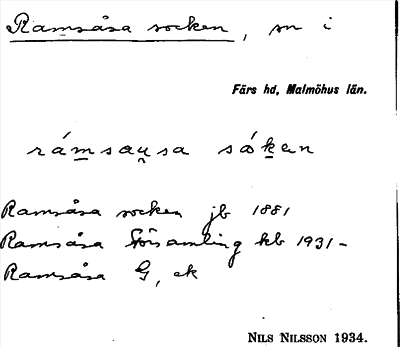 Ramsåsa socken, sn i
Färs hd, Malmöhus län.
rámsau̯sa sóken
Ramsåsa socken jb 1881
Ramsåsa församling kb 1931-
Ramsåsa G, ek
NILS NILSSON 1934.